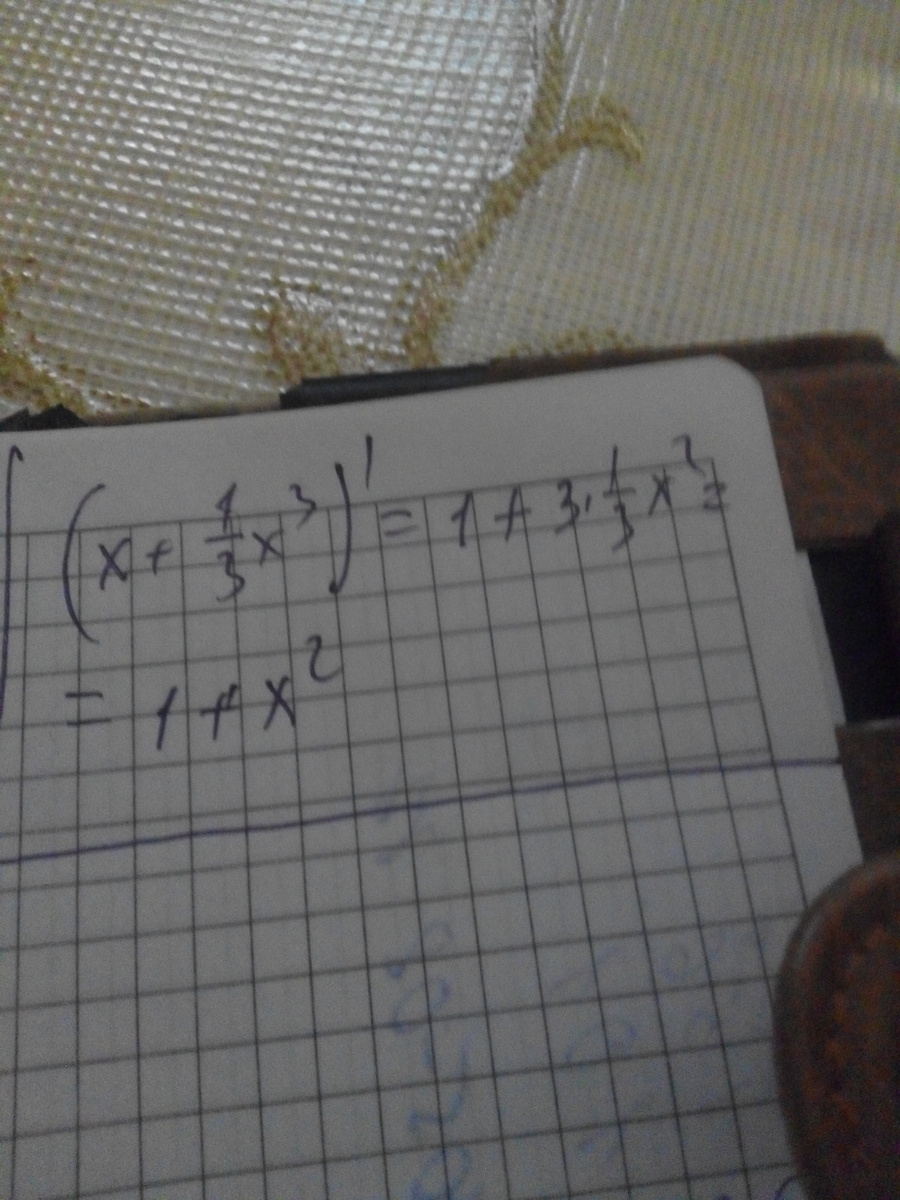 (x + 1/3 x³)' = 1 + 3 · 1/3 x² =
= 1 + x²